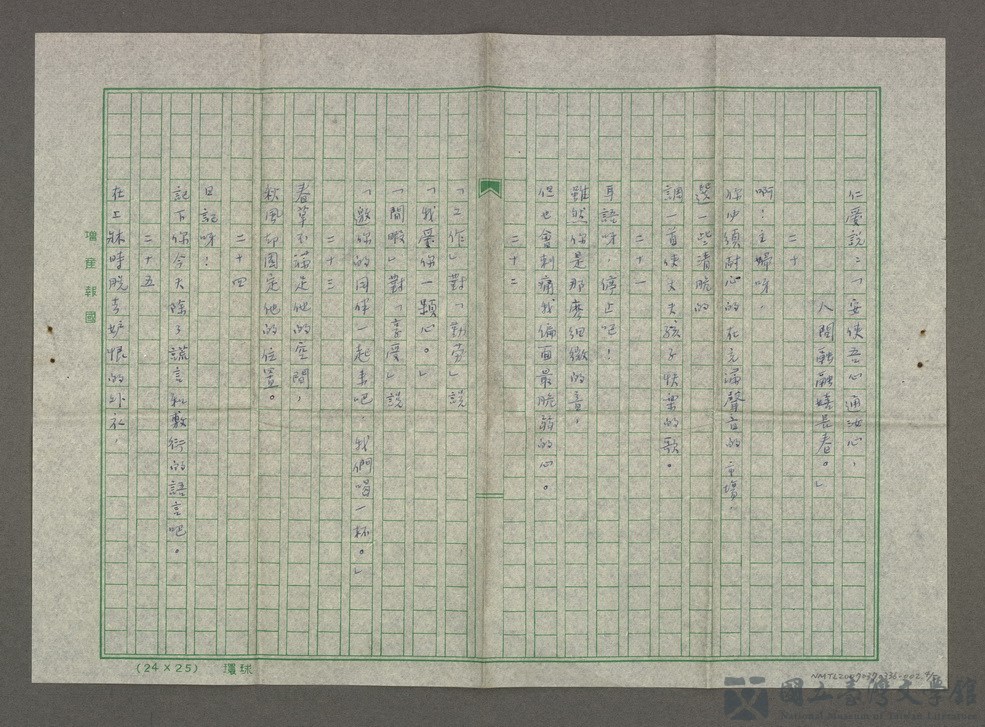 仁愛說：「要使吾心通汝心，
人間融融皆長春。」
二十
啊！主婦呀，
你必須耐心的在充滿聲音的市場，
選一些清脆的
調一首使丈夫孩子快樂的歌。
二十一
耳語呀　停止吧！
雖然你是那麼細微的音，
但也會刺痛我偏面最脆弱的心。
二十二
「工作」對「勤勞」說
「我愛你一顆心。」
「閒暇」對「享受」說
「邀你的同伴一起來吧，我們喝一杯。」
二十三
春草不滿足他的空間，
秋風卻固定他的位置。
二十四
日記呀！
記下你今天除了謊言和敷衍的語言吧。
二十五
在工緣時脫去妒恨的外衣，
增產報國
(24×25)　環球
國立臺灣文學館
National Museum of Taiwan Literature